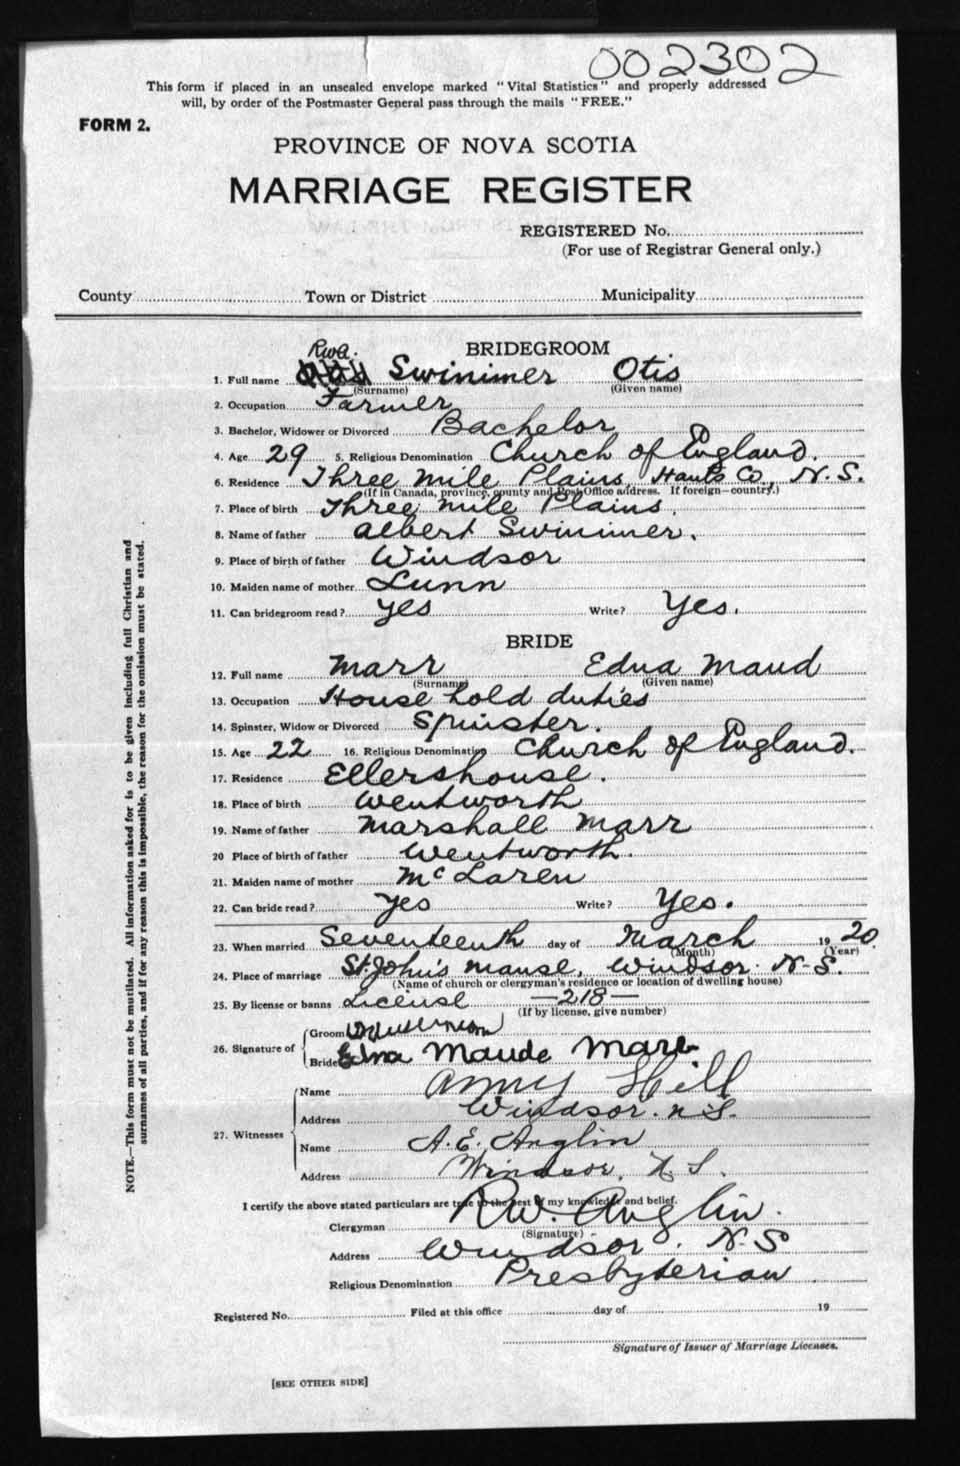 002302
This form if placed in an unsealed envelope marked "Vital Statistics" and properly addressed
will, by order of the Postmaster General pass through the mails "FREE."
FORM 2.
PROVINCE OF NOVA SCOTIA
MARRIAGE REGISTER
REGISTERED No.
(For use of Registrar General only.)
County Town or District Municipality
BRIDEGROOM
RWA.
1. Full name Swinimer Otis
(Surname) (Given name)
2. Occupation Farmer
3. Bachelor, Widower or Divorced Bachelor
4. Age 29 5. Religious Denomination Church of England.
6. Residence Three Mile Plains, Hants Co., N.S.
(If in Canada, province, county and Post Office address. If foreign—country.)
7. Place of birth Three mile Plains.
8. Name of father Albert Swinimer.
9. Place of birth of father Windsor
10. Maiden name of mother Lunn
11. Can bridegroom read? yes Write? Yes.
BRIDE
12. Full name Marr Edna Maud
(Surname) (Given name)
13. Occupation House hold duties
14. Spinster, Widow or Divorced Spinster.
15. Age 22 16. Religious Denomination Church of England.
17. Residence Ellershouse.
18. Place of birth Wentworth
19. Name of father Marshall Marr
20 Place of birth of father Wentworth.
21. Maiden name of mother McLaren
22. Can bride read? Yes Write? Yes.
23. When married Seventeenth day of March 1920.
(Month) (Year)
24. Place of marriage St. John's Manse, Windsor. N.S.
(Name of church or clergyman's residence or location of dwelling house)
25. By license or banns License —218—
(If by license, give number)
26. Signature of Groom
Bride Edna Maude Marr
27. Witnesses Name Hill
Address Windsor. N.S.
Name A. E. Anglin
Address Windsor, N.S.
I certify the above stated particulars are true to the best of my knowledge and belief.
Clergyman R.W. Anglin.
(Signature)
Address Windsor. N.S
Religious Denomination Presbyterian
Registered No. Filed at this office day of 19
Signature of Issuer of Marriage Licenses.
[SEE OTHER SIDE]
NOTE.—This form must not be mutilated. All information asked for is to be given including full Christian and
surnames of all parties, and if for any reason this is impossible, the reason for the omission must be stated.